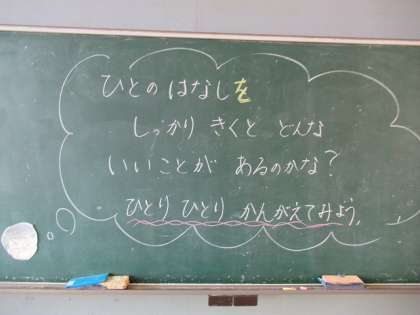 ひとの はなしを
しっかり きくと どんな
いいことが あるのかな?
ひとり ひとり かんがえてみよう。